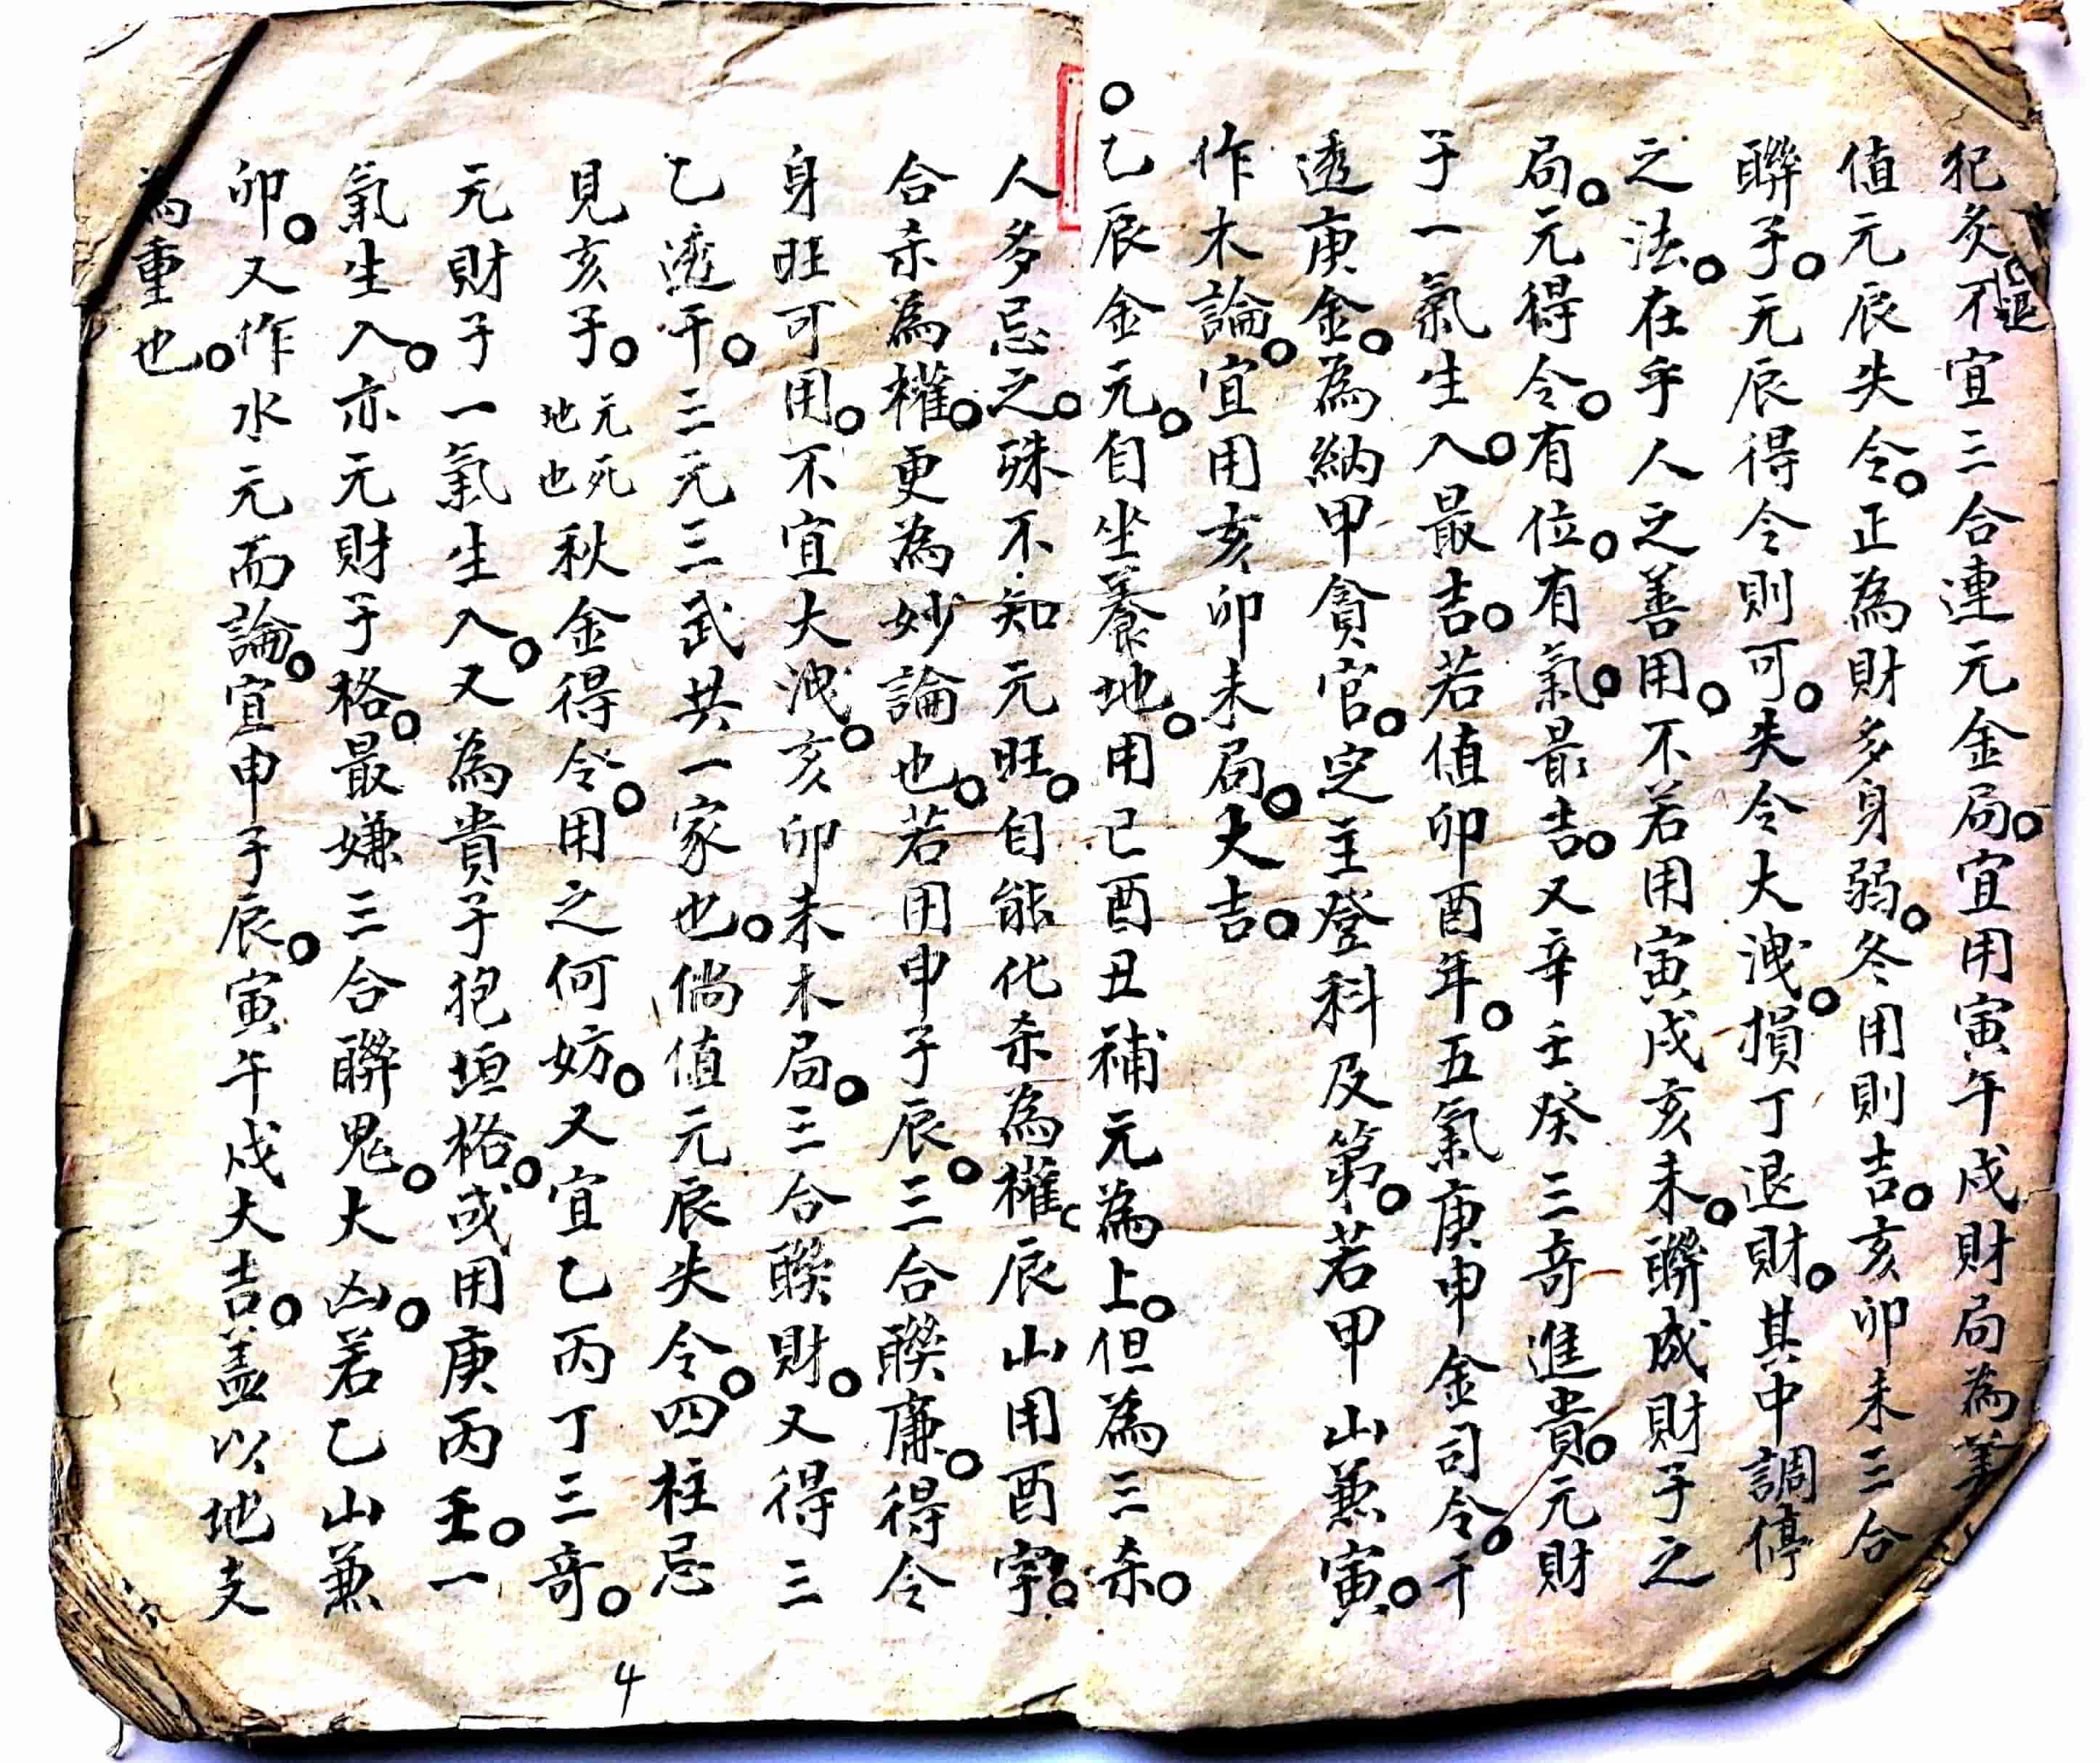 犯炙退。不宜三合連元金局。宜用寅午戍財局為美
值元辰失令。正為財多身弱。冬用則吉。亥卯未三合
聯子。元辰得令則可。失令大洩。損丁退財。其中調停
之法。在乎人之善用。不若用寅戍亥未。聯成財子之
局。元得令。有位。有氣。最吉。又辛壬癸三奇進貴。元財
子一氣生入。最吉。若值卯酉年。五氣庚申金司令。干
透庚金。為納甲貪官。定主登科及第。若甲山兼寅。
作木論。宜用亥卯未局。大吉。
○乙辰金元。自坐養地。用已酉丑補元為上。但為三杀。
人多忌之。殊不知元旺。自能化杀為權。辰山用酉字。
合杀為權。更為妙論也。若用申子辰。三合聯廉。得令
身旺可用。不宜大洩。亥卯未木局。三合聯財。又得三
乙透干。三元三武共一家也。倘值元辰失令。四柱忌
見亥子。元死地也秋金得令。用之何妨。又宜乙丙丁三奇。
元財子一氣生入。又為貴子抱垣格。或用庚丙壬。一
氣生入。亦元財子格。最嫌三合聯鬼。大凶。若乙山兼
卯。又作水元而論。宜申子辰。寅午戍大吉。盖以地支
為重也。
4